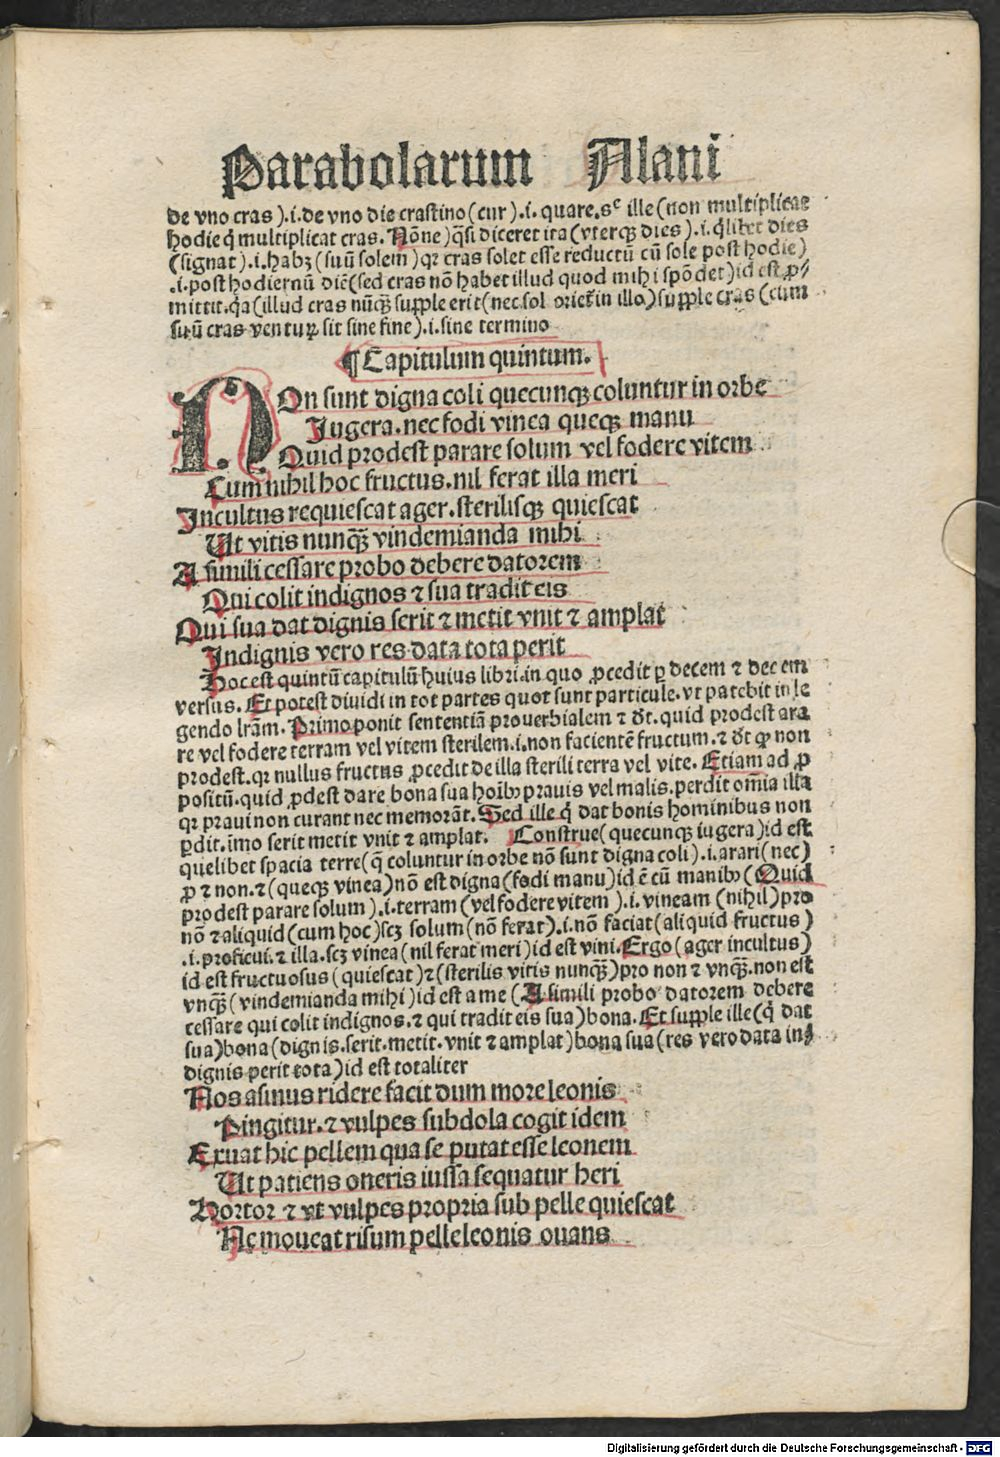 Parabolarum Alani
de vno cras).i.de vno die crastino(cur).i. quare.sᶜ ille(non multiplicat
hodie q̇ multiplicat cras. Nõne)q̃si diceret ita(vterqꝫ dies).i.q̃libet dies
(signat).i.habꝫ(suũ solem)qꝛ cras solet esse reductũ cũ sole post hodie)
.i.post hodiernũ diẽ(sed cras nõ habet illud quod mihi spõdet)id est ꝓ
mittit.q̇a(illud cras nũqꝫ̃ supple erit(nec sol oriet᷑ in illo)supple cras(cum
suũ cras ventuꝝ sit sine fine).i.sine termino
¶Capitulum quintum.
NOn sunt digna coli quecunqꝫ coluntur in orbe
Jugera.nec fodi vinea queqꝫ manu
Quid prodest parare solum vel fodere vitem
Cum nihil hoc fructus.nil ferat illa meri
Jncultus requiescat ager.sterilisqꝫ quiescat
Ut vitis nunqꝫ̃ vindemianda mihi
A simili cessare probo debere datorem
Qui colit indignos ⁊ sua tradit eis
Qui sua dat dignis serit ⁊ metit vnit ⁊ amplat
Jndignis vero res data tota perit
Hoc est quintũ capitulũ huius libri.in quo ꝓcedit ꝑ decem ⁊ decem
versus. Et potest diuidi in tot partes quot sunt particule.vt patebit in le
gendo lr̃am. Primo ponit sententiã prouerbialem ⁊ dt̃. quid prodest ara
re vel fodere terram vel vitem sterilem.i.non facientẽ fructum.⁊ dt̃ ꝙ non
prodest.qꝛ nullus fructus ꝓcedit de illa sterili terra vel vite. Etiam ad ꝓ
positũ.quid ꝓdest dare bona sua hoĩbꝰ prauis vel malis.perdit om̃ia illa
qꝛ praui non curant nec memorãt. Sed ille q̇ dat bonis hominibus non
ꝑdit.imo serit metit vnit ⁊ amplat. Construe(quecunqꝫ iugera)id est
quelibet spacia terre(q̃ coluntur in orbe nõ sunt digna coli).i.arari(nec)
ꝓ ⁊ non.⁊(queqꝫ vinea)nõ est digna(fodi manu)id ẽ cũ manibꝰ(Quid
prodest parare solum).i.terram(vel fodere vitem).i.vineam(nihil)pro
nõ ⁊ aliquid(cum hoc)scꝫ solum(nõ ferat).i.nõ faciat(aliquid fructus)
.i.proficui.⁊ illa.scꝫ vinea(nil ferat meri)id est vini.Ergo(ager incultus)
id est fructuosus(quiescat)⁊(sterilis vitis nunqꝫ̃)pro non ⁊ vnqꝫ̃.non est
vnqꝫ̃(vindemianda mihi)id est a me(A simili probo datorem debere
cessare qui colit indignos.⁊ qui tradit eis sua)bona.Et supple ille(q̇ dat
sua)bona(dignis.serit.metit.vnit ⁊ amplat)bona sua(res vero data in
dignis perit tota)id est totaliter
Nos asinus ridere facit dum more leonis
Pingitur.⁊ vulpes subdola cogit idem
Exuat hic pellem qua se putat esse leonem
Ut patiens oneris iussa sequatur heri
Hortor ⁊ vt vulpes propria sub pelle quiescat
Ne moueat risum pelle leonis ouans
Digitalisierung gefördert durch die Deutsche Forschungsgemeinschaft - DFG